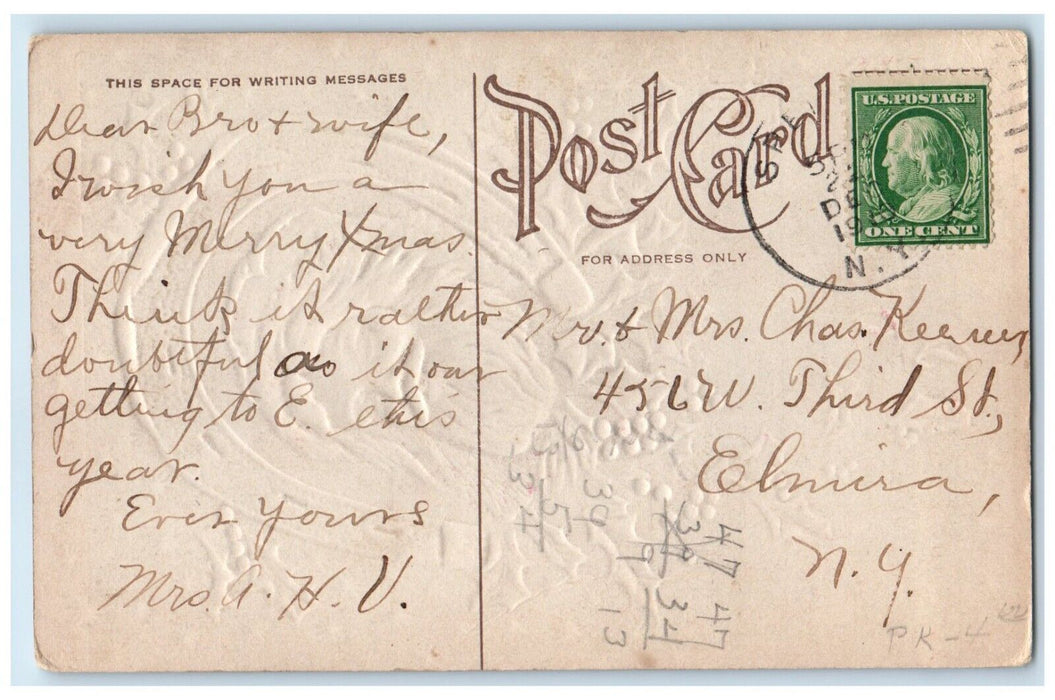 THIS SPACE FOR WRITING MESSAGES
Dear Bro + wife,
I wish you a
very Merry Xmas.
Think it rather
doubtful as it our
getting to E. this
year.
Ever Yours
Mrs. A. H. V.
Post Card
FOR ADDRESS ONLY
U.S. POSTAGE
ONE CENT
DEC
N.Y.
Mr. & Mrs. Chas.
456 W. Third St.,
Elmira,
N.Y.
47 47
34 34
13
39
5
9
PK-4